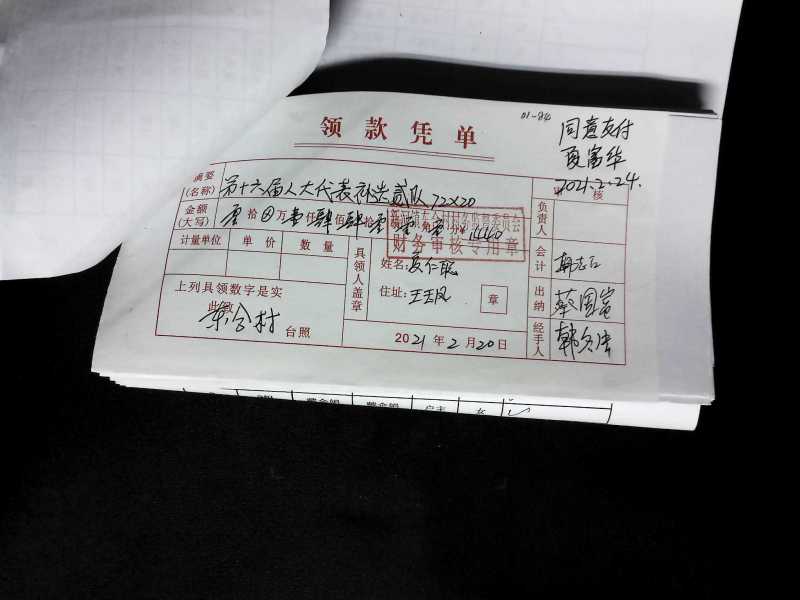 01-84
领款凭单
同意支付
夏富华
2021.2.24.
摘要(名称) 第十六届人大代表补选贰队 72×20 审核
金额(大写) 零拾 万壹仟肆佰肆拾零 角零分 ¥1440 负责人
财务审核专用章
计量单位 单价 数量 具领人盖章 姓名: 夏仁聪 会计
住址: 章 出纳 蔡国富
上列具领数字是实
此致
东合村 台照
2021年2月20日 经手人